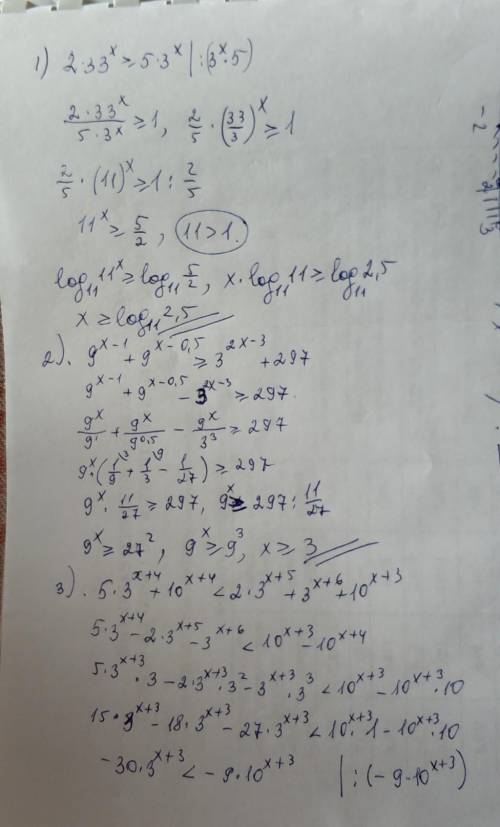 1) 2·33^x ≥ 5·3^x | :(3^x·5)
2·33^x / 5·3^x ≥ 1, 2/5 · (33/3)^x ≥ 1
2/5 · (11)^x ≥ 1 : 2/5
11^x ≥ 5/2, 11 > 1.
log₁₁ 11^x ≥ log₁₁ 5/2, x·log₁₁ 11 ≥ log₁₁ 2,5
x ≥ log₁₁ 2,5
2). 9^(x-1) + 9^(x-0,5) ≥ 3^(2x-3) + 297
9^(x-1) + 9^(x-0,5) - 3^(2x-3) ≥ 297.
9^x/9^1 + 9^x/9^0,5 - 9^x/3^3 ≥ 297
9^x·(1/9 + 1/3 - 1/27) ≥ 297
9^x · 11/27 ≥ 297, 9^x ≥ 297 : 11/27
9^x ≥ 27^2, 9^x ≥ 9^3, x ≥ 3
3). 5·3^(x+4) + 10^(x+4) < 2·3^(x+5) + 3^(x+6) + 10^(x+3)
5·3^(x+4) - 2·3^(x+5) - 3^(x+6) < 10^(x+3) - 10^(x+4)
5·3^(x+3)·3 - 2·3^(x+3)·3^2 - 3^(x+3)·3^3 < 10^(x+3) - 10^(x+3)·10
15·3^(x+3) - 18·3^(x+3) - 27·3^(x+3) < 10^(x+3)·1 - 10^(x+3)·10
-30·3^(x+3) < -9·10^(x+3) | :(-9·10^(x+3))